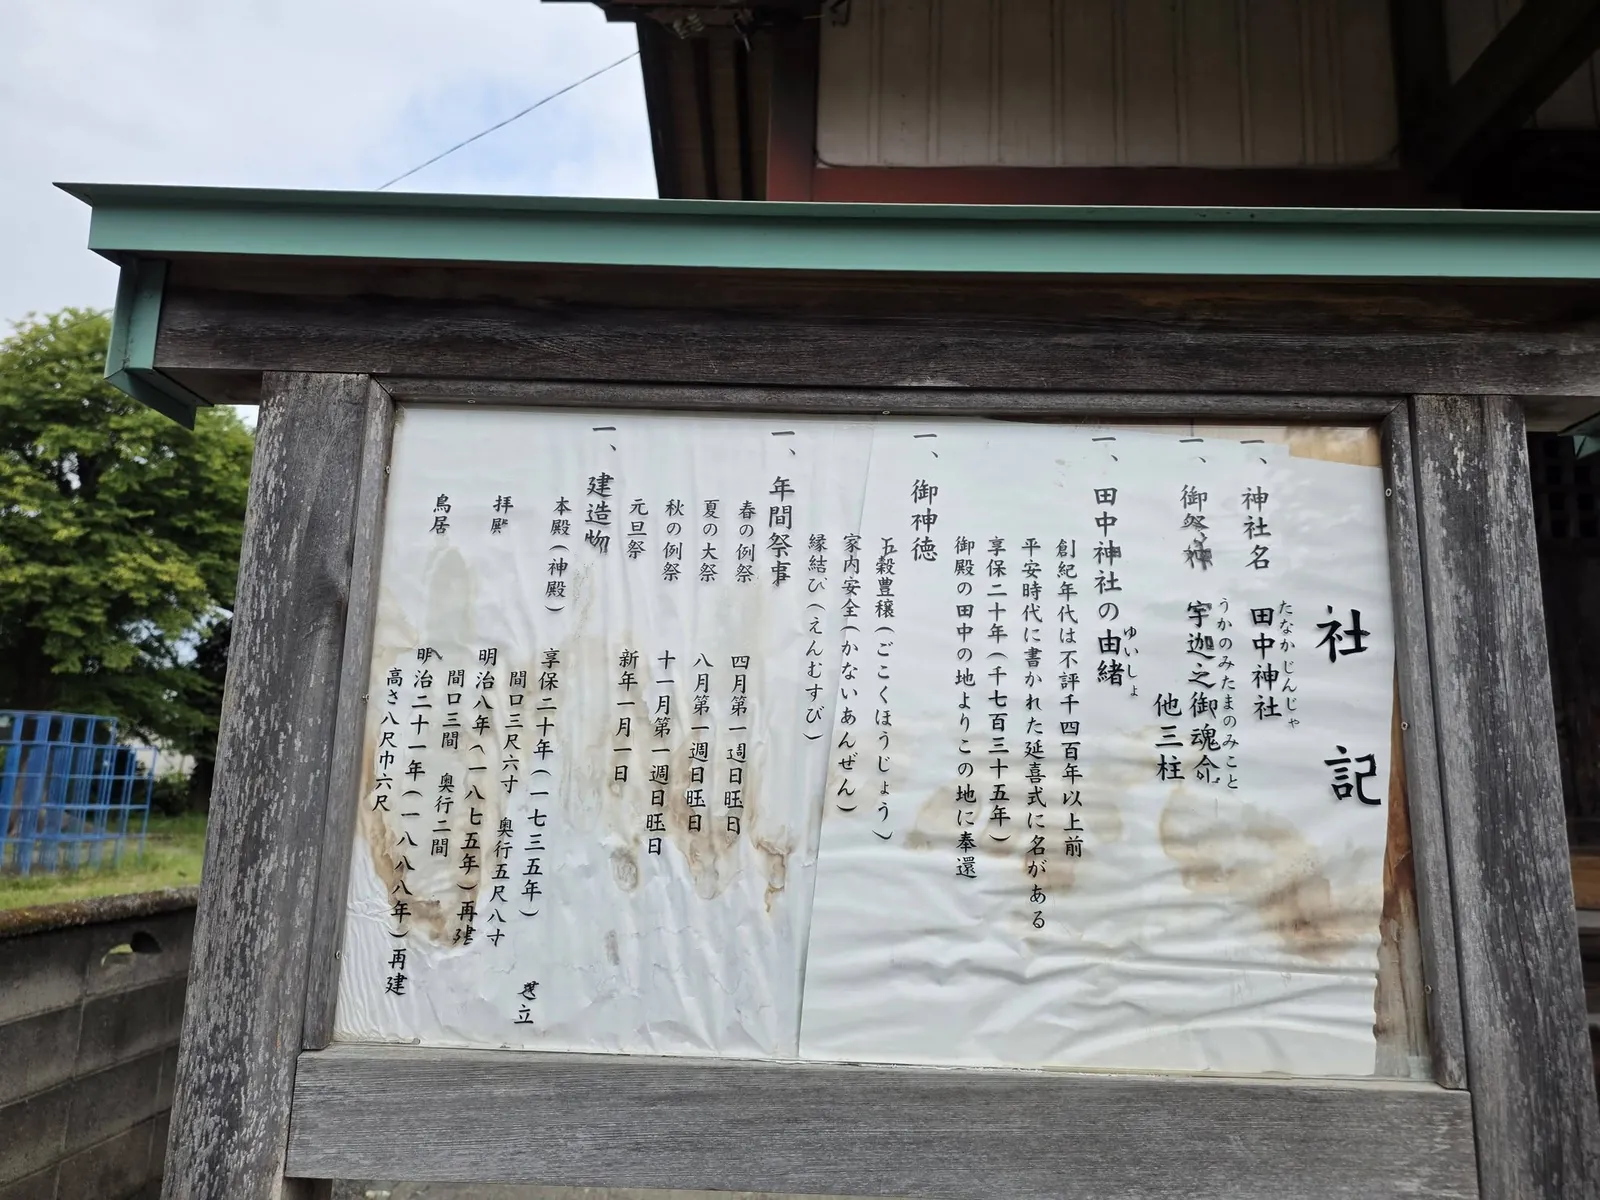 社記
一、神社名 田中神社
たなかじんじゃ
一、御祭神 宇迦之御魂命
うかのみたまのみこと
他三柱
一、田中神社の由緒
ゆいしょ
創紀年代は不評千四百年以上前
平安時代に書かれた延喜式に名がある
享保二十年(千七百三十五年)
御殿の田中の地よりこの地に奉還
一、御神徳
五穀豊穣(ごこくほうじょう)
家内安全(かないあんぜん)
縁結び(えんむすび)
一、年間祭事
春の例祭 四月第一週日旺日
夏の大祭 八月第一週日旺日
秋の例祭 十一月第一週日旺日
元旦祭 新年一月一日
一、建造物
本殿(神殿) 享保二十年(一七三五年) 建立
間口三尺六寸 奥行五尺八寸
拝殿 明治八年(一八七五年)再建
間口三間 奥行二間
鳥居 明治二十一年(一八八八年)再建
高さ八尺巾六尺